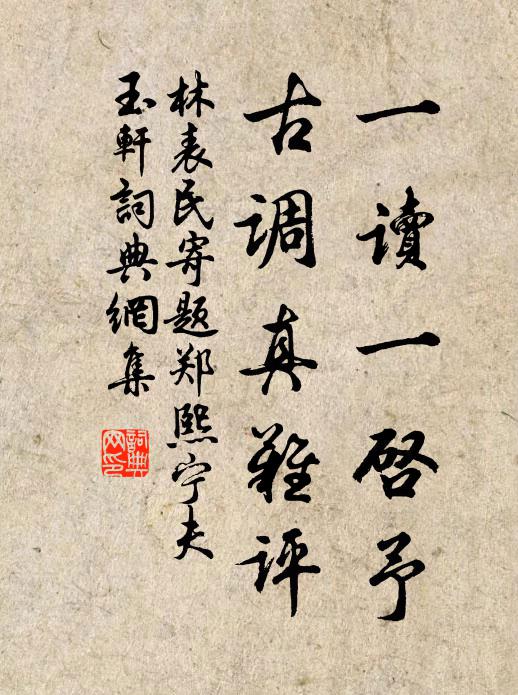 一讀一启予
古调真难评
林表民寄题郑熙宁夫
玉軒詞典網集
詞典网印